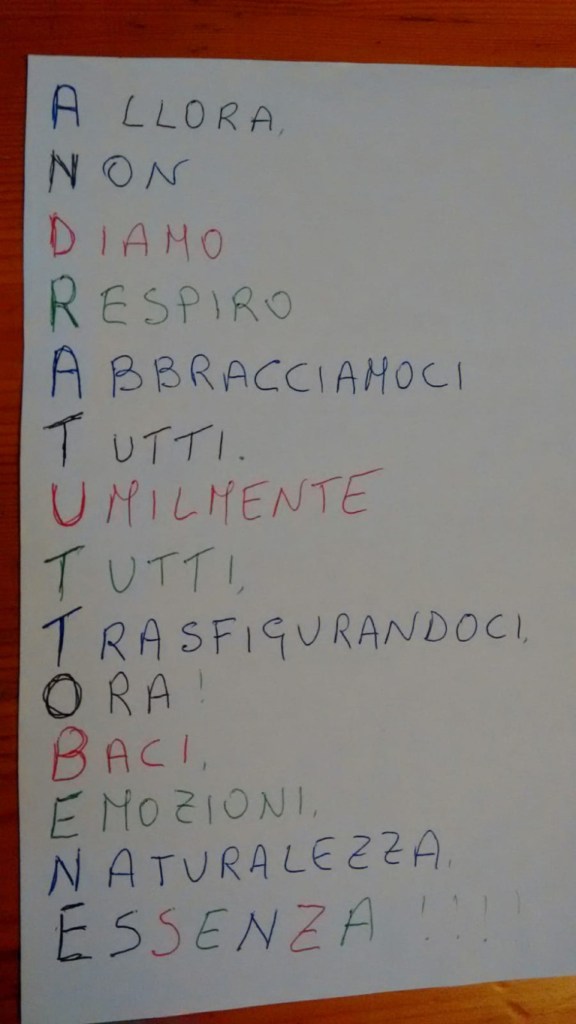 ALLORA,
NON
DIAMO
RESPIRO
ABBRACCIAMOCI
TUTTI.
UMILMENTE
TUTTI,
TRASFIGURANDOCI,
ORA!
BACI,
EMOZIONI,
NATURALEZZA,
ESSENZA!!!!